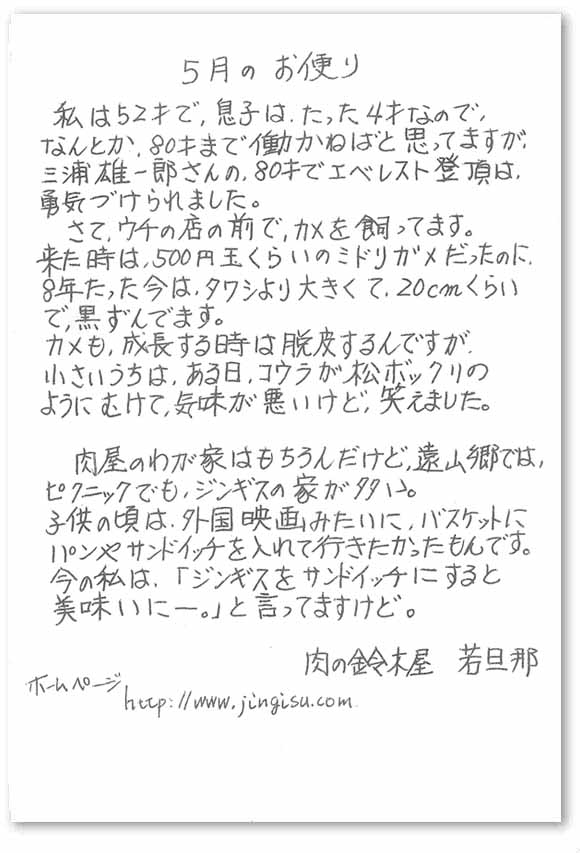 5月のお便り
私は52才で、息子は、たった4才なので、
なんとか、80才まで働かねばと思ってますが、
三浦雄一郎さんの、80才でエベレスト登頂は、
勇気づけられました。
さて、ウチの店の前で、カメを飼ってます。
来た時は、500円玉くらいのミドリガメだったのに、
8年たった今は、タワシより大きくて、20cmくらい
で、黒ずんでます。
カメも、成長する時は脱皮するんですが、
小さいうちは、ある日、コウラが、松ボックリの
ようにむけて、気味が悪いけど、笑えました。
肉屋のわが家はもちろんだけど、遠山郷では、
ピクニックでも、ジンギスの家が多い。
子供の頃は、外国映画みたいに、バスケットに
パンやサンドイッチを入れて行きたかったもんです。
今の私は、「ジンギスをサンドイッチにすると
美味いにー。」と言ってますけど。
肉の鈴木屋 若旦那
ホームページ
http://www.jingisu.com